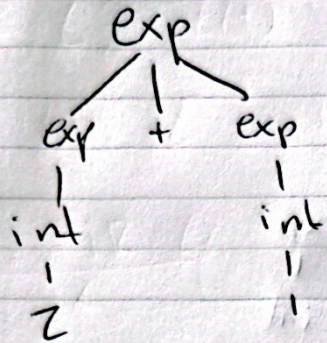 exp
exp + exp
int int
2 1